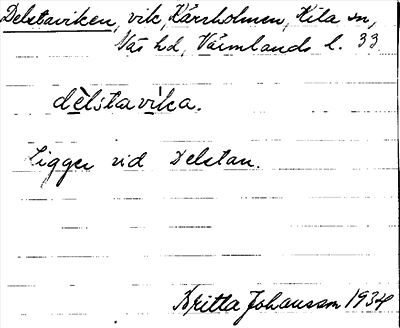 Delstaviken, vik, Kärrholmen, Kila sn,
Näs hd, Värmlands l. 33
dèlstavíka.
Ligger vid Delstan.
Britta Johansson 1934